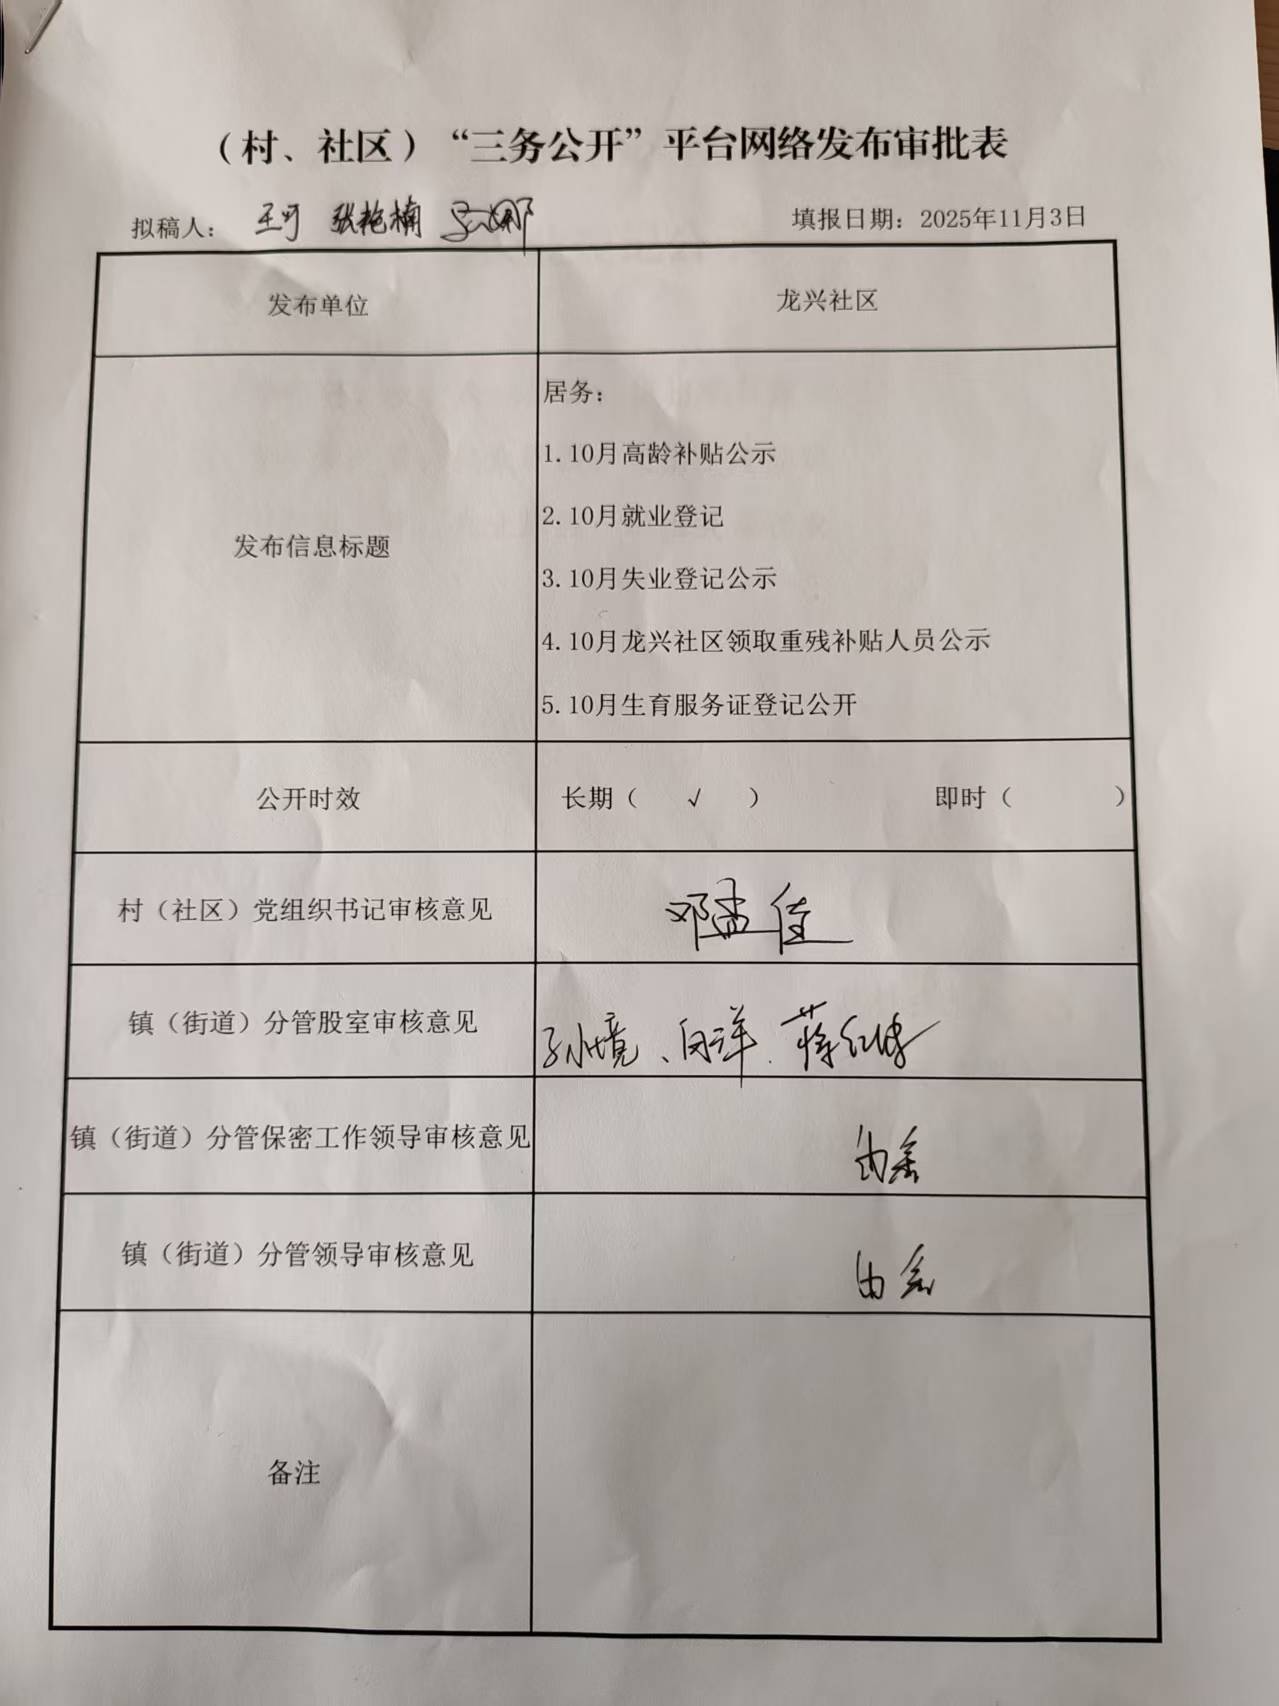 （村、社区）“三务公开”平台网络发布审批表
拟稿人： 王可 张艳楠 填报日期：2025年11月3日
发布单位 龙兴社区
发布信息标题
居务：
1.10月高龄补贴公示
2.10月就业登记
3.10月失业登记公示
4.10月龙兴社区领取重残补贴人员公示
5.10月生育服务证登记公开
公开时效 长期（ √ ） 即时（ ）
村（社区）党组织书记审核意见 邓孟佳
镇（街道）分管股室审核意见 孙小境、
镇（街道）分管保密工作领导审核意见
镇（街道）分管领导审核意见
备注